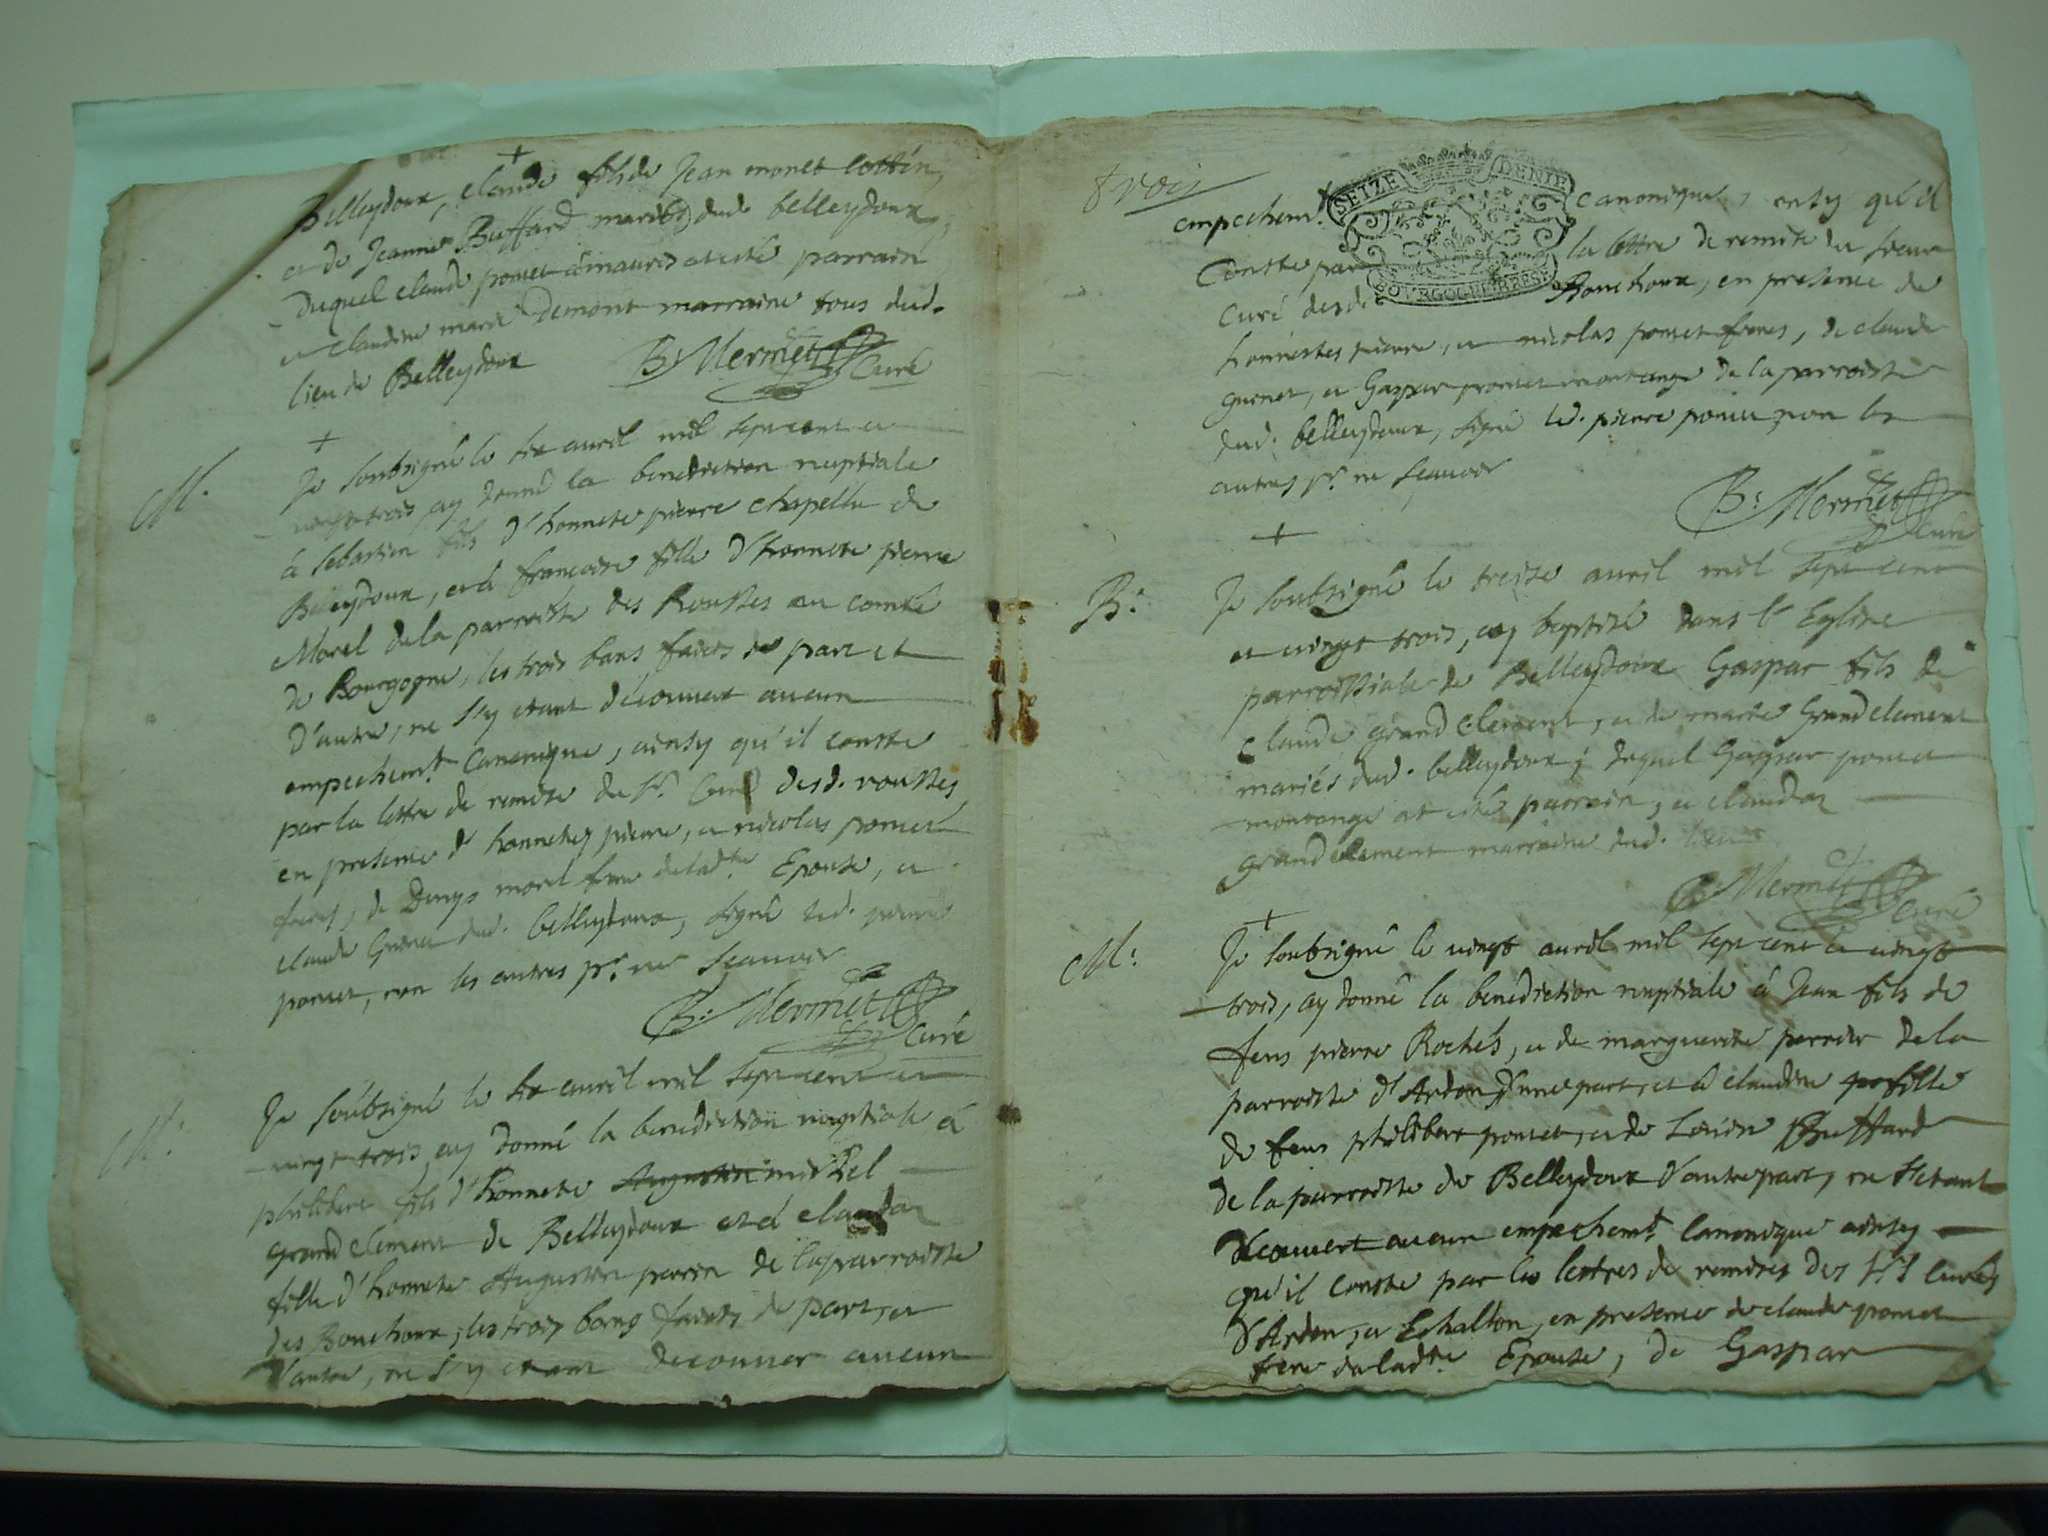 Belleydoux, claude fils de Jean monet cottin,
et de Jeanne Buffard mariés dud. belleydoux,
duquel claude poncet émauris at esté parrain
et claudine marie Demont marraine tous dud.
lieu de Belleydoux B: Mermet Curé
M. Je soubsigné le six auril mil sept cent et
vingt trois, ay donné la benediction nuptiale
à sebastien fils d'honneste pierre chapelle de
Belleydoux, et à francoise fille d'honneste pierre
Morel de la parroisse des Rousses au comté
de Bourgogne, les trois bans faicts de part et
d'autre, ne s'y etant découvert aucun
empechemt. Canonique, ainsy qu'il conste
par la lettre de remise du Sr. Curé desd. rousses,
en presence d'honnestes pierre, et nicolas poncet
freres, de Denys morel frere de lad.te Epouse, et
claude Guenet dud. belleydoux, signé led. pierre
poncet, non les autres pr. ne scauoir
B: Mermet Curé
M: Je soubsigné le six auril mil sept cent et
vingt trois, ay donné la benediction nuptiale à
philibert fils d'honneste Augustin michel
grand clement de Belleydoux et à claudaz
fille d'honneste Augustin perrin de la parroisse
des Bouchoux, les trois bans faicts de part, et
d'autre, ne s'y etant decouuer aucun
trois
empechemt. canonique, ainsy qu'il
Conste par la lettre de remise du sieur
SEIZE DENIE
BOURGOGNE BRESSE
Curé desd. Bouchoux, en presence de
honnestes pierre, et nicolas poncet freres, de claude
guenet, et Gaspar poncet montange de la parroisse
dud. belleydoux, signé led. pierre poncet non les
autres pr. ne scauoir
B: Mermet Curé
B: Je soubsigné le treize auril mil sept cent
et vingt trois, ay baptisé dans l'Eglise
parroissiale de Belleydoux Gaspar fils de
claude grand clement, et de marie Grand clement
mariés dud. belleydoux; duquel Gaspar poncet
montange at esté parrain, et claudaz
grand clement marraine dud. lieu
B: Mermet Curé
M: Je soubsigné le vingt auril mil sept cent et vingt
trois, ay donné la benediction nuptiale à Jean fils de
feus pierre Rochés, et de marguerite perrier de la
parroisse d'Ardon d'une part, et à claudine fille
de feus philibert poncet, et de Louise Buffard
de la parroisse de Belleydoux d'autre part, ne s'etant
découvert aucun empechemt. Canonique ainsy
qu'il conste par les lettres de remises des srs. Curés
d'Ardon, et Echallon, en presence de claude poncet
frere de lad.te Epouse, de Gaspar